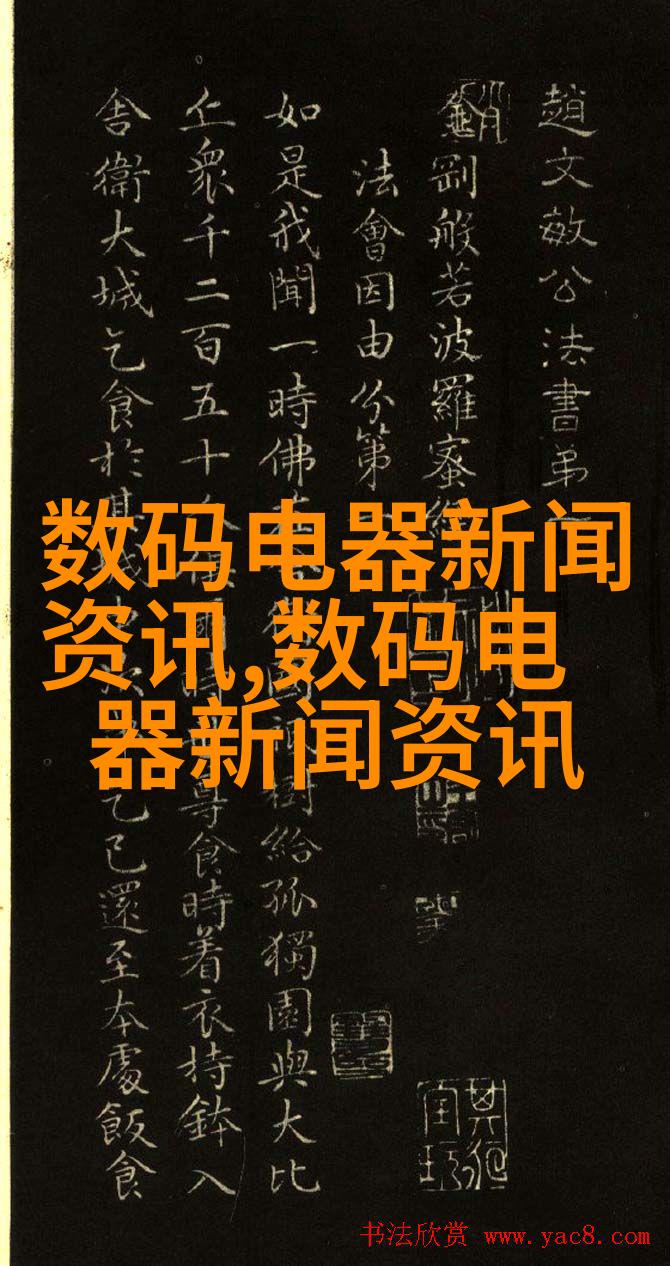 趙文敏公法書弟
金剛般若波羅蜜
法會因由分第
如是我聞一時佛 樹給孤獨園與大比
丘衆千二百五十 尊食時着衣持鉢入
舍衛大城乞食於其 乞已還至本處飯食
数码电器新闻
资讯,数码电
器新闻资讯
书法欣赏 www.yac8.com